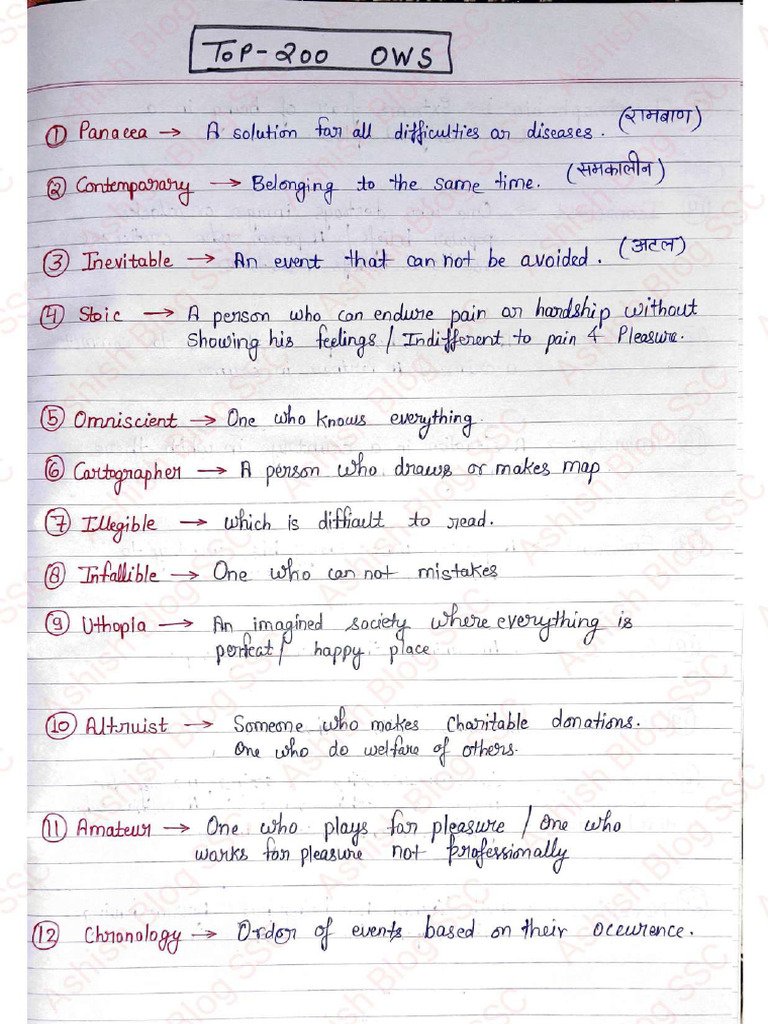 TOP-200 OWS
① Panacea → A solution for all difficulties or diseases. (रामबाण)
② Contemporary → Belonging to the same time. (समकालीन)
③ Inevitable → An event that can not be avoided. (अटल)
④ Stoic → A person who can endure pain or hardship without
showing his feelings / Indifferent to pain & Pleasure.
⑤ Omniscient → One who knows everything.
⑥ Cartographer → A person who draws or makes map
⑦ Illegible → which is difficult to read.
⑧ Infallible → One who can not mistakes
⑨ Uthopia → An imagined society where everything is
perfect/ happy place
⑩ Altruist → Someone who makes charitable donations.
One who do welfare of others.
⑪ Amateur → One who plays for pleasure / One who
works for pleasure not professionally
⑫ Chronology → Order of events based on their occurence.
Ashish Blog SSC